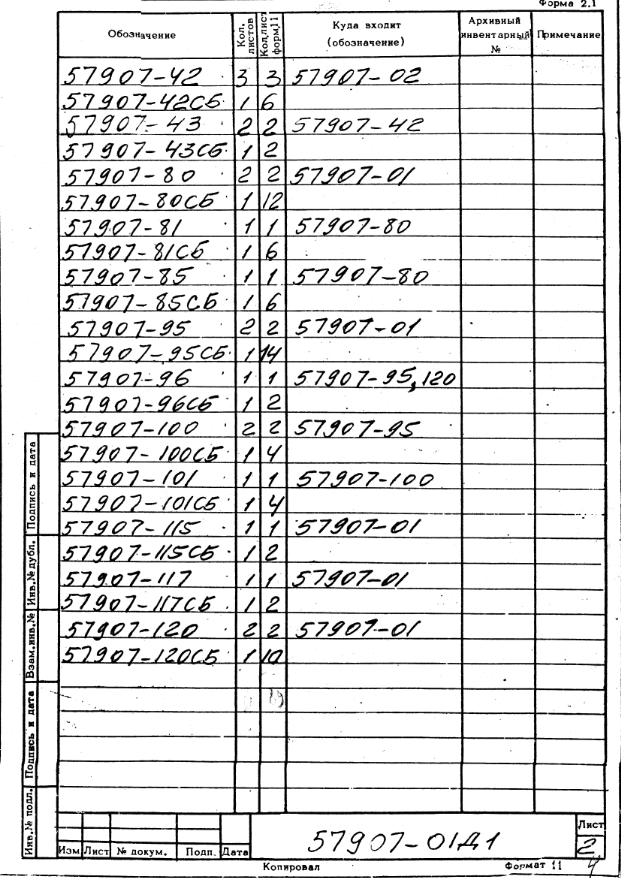 Форма 2.1
Обозначение Кол. листов Кол.лист форм.11 Куда входит (обозначение) Архивный инвентарный № Примечание
57907-42 3 3 57907-02
57907-42СБ 1 6
57907-43 2 2 57907-42
57907-43СБ 1 2
57907-80 2 2 57907-01
57907-80СБ 1 12
57907-81 1 1 57907-80
57907-81СБ 1 6
57907-85 1 1 57907-80
57907-85СБ 1 6
57907-95 2 2 57907-01
57907-95СБ 1 14
57907-96 1 1 57907-95,120
57907-96СБ 1 2
57907-100 2 2 57907-95
57907-100СБ 1 4
57907-101 1 1 57907-100
57907-101СБ 1 4
57907-115 1 1 57907-01
57907-115СБ 1 2
57907-117 1 1 57907-01
57907-117СБ 1 2
57907-120 2 2 57907-01
57907-120СБ 1 10
Подпись и дата
Инв.№ дубл.
Взам.инв.№
Подпись и дата
Инв.№ подл.
Изм Лист № докум. Подп. Дата
57907-01Д1
Лист
2
Копировал
Формат 11
4